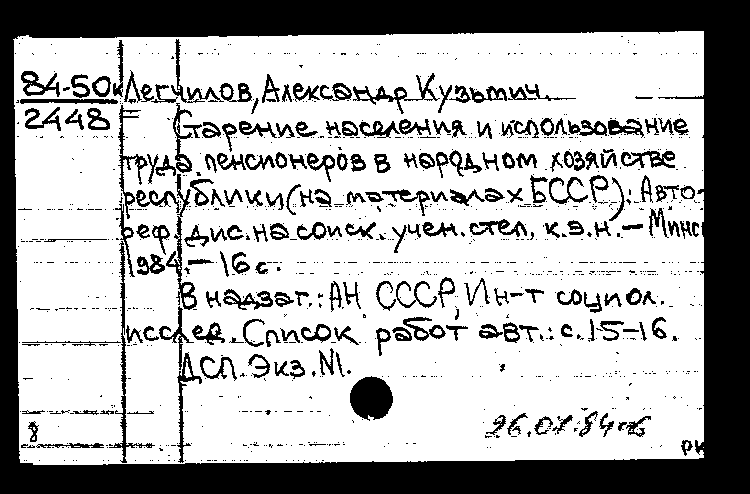 84-50к Легчилов, Александр Кузьмич.
2448 Старение населения и использование
труда пенсионеров в народном хозяйстве
республики (на материалах БССР): Авто-
реф. дис. на соиск. учен. степ. к.э.н. — Минск
1984. — 16 с.
В надзаг.: АН СССР, Ин-т социол.
исслед. Список работ авт.: с. 15-16.
ДСП. Экз. N1.
26.07.84
8
РК